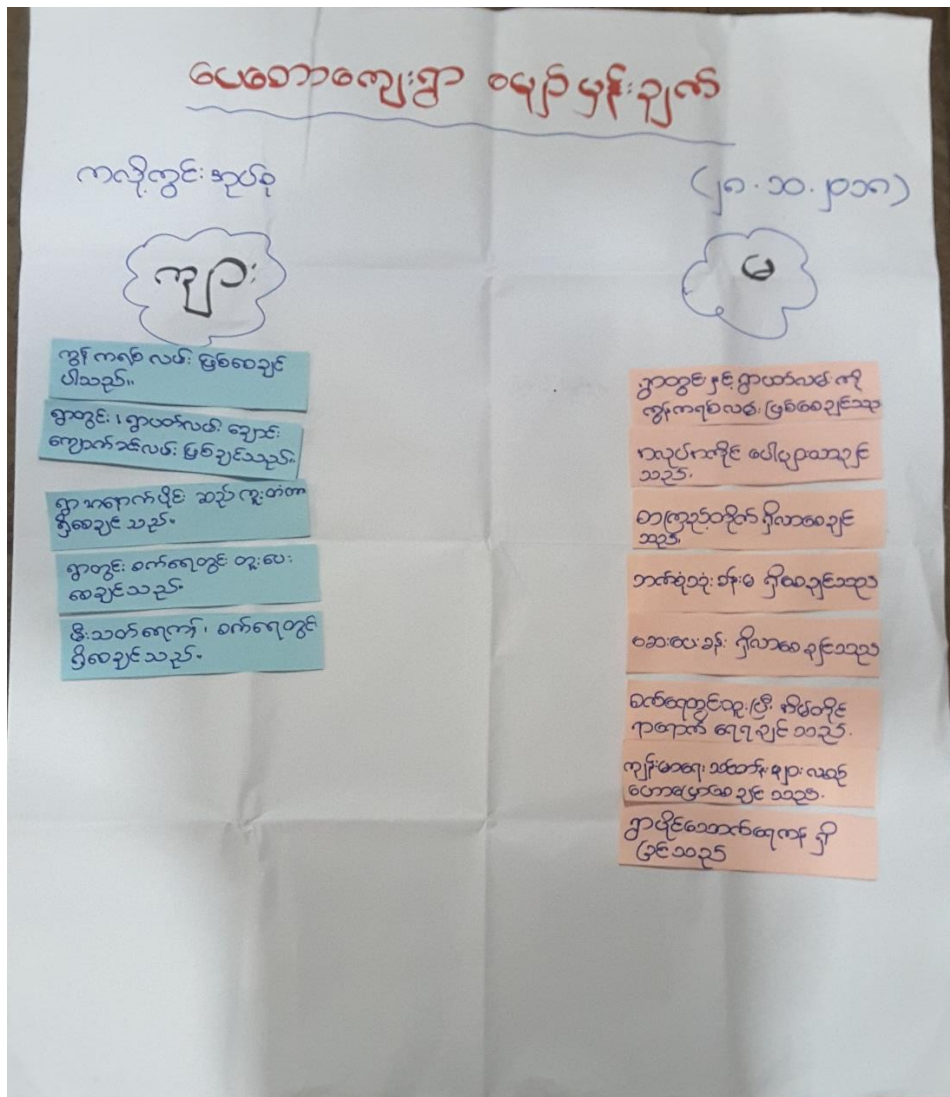 ပေတောကျေးရွာ မျှော်မှန်းချက်
ကလိုကွင်းအုပ်စု
(၂၈.၁၀.၂၀၁၈)
ကျား
ကွန်ကရစ် လမ်း ဖြစ်စေချင်
ပါသည်။
ရွာတွင်း၊ ရွာပတ်လမ်း ချောင်း
ကျောက်ခင်းလမ်း ဖြစ်ချင်သည်။
ရွာအနောက်ပိုင်း ဆည်ကူးတံတာ
ရှိစေချင်သည်။
ရွာတွင်း စက်ရေတွင်း တူးပေး
စေချင်သည်။
မီးသတ်ရေကန်၊ စက်ရေတွင်း
ရှိစေချင်သည်။
မ
ရွာတွင်းနှင့်ရွာပတ်လမ်းကို
ကွန်ကရစ်လမ်းဖြစ်စေချင်သည်
အလုပ်အကိုင် ပေါများလာချင်
သည်.
စာကြည့်တိုက် ရှိလာစေချင်
သည်.
ဘက်စုံသုံးခန်းမ ရှိစေချင်သည်
ဆေးပေးခန်း ရှိလာစေချင်သည်
စက်ရေတွင်းတူးပြီး အိမ်တိုင်
ရာရောက် ရေရချင်သည်.
ကျန်းမာရေး သင်တန်းများ လာ
ဟောပြောစေချင်သည်.
ရွာပိုင်သောက်ရေကန် ရှိ
ခြင်သည်